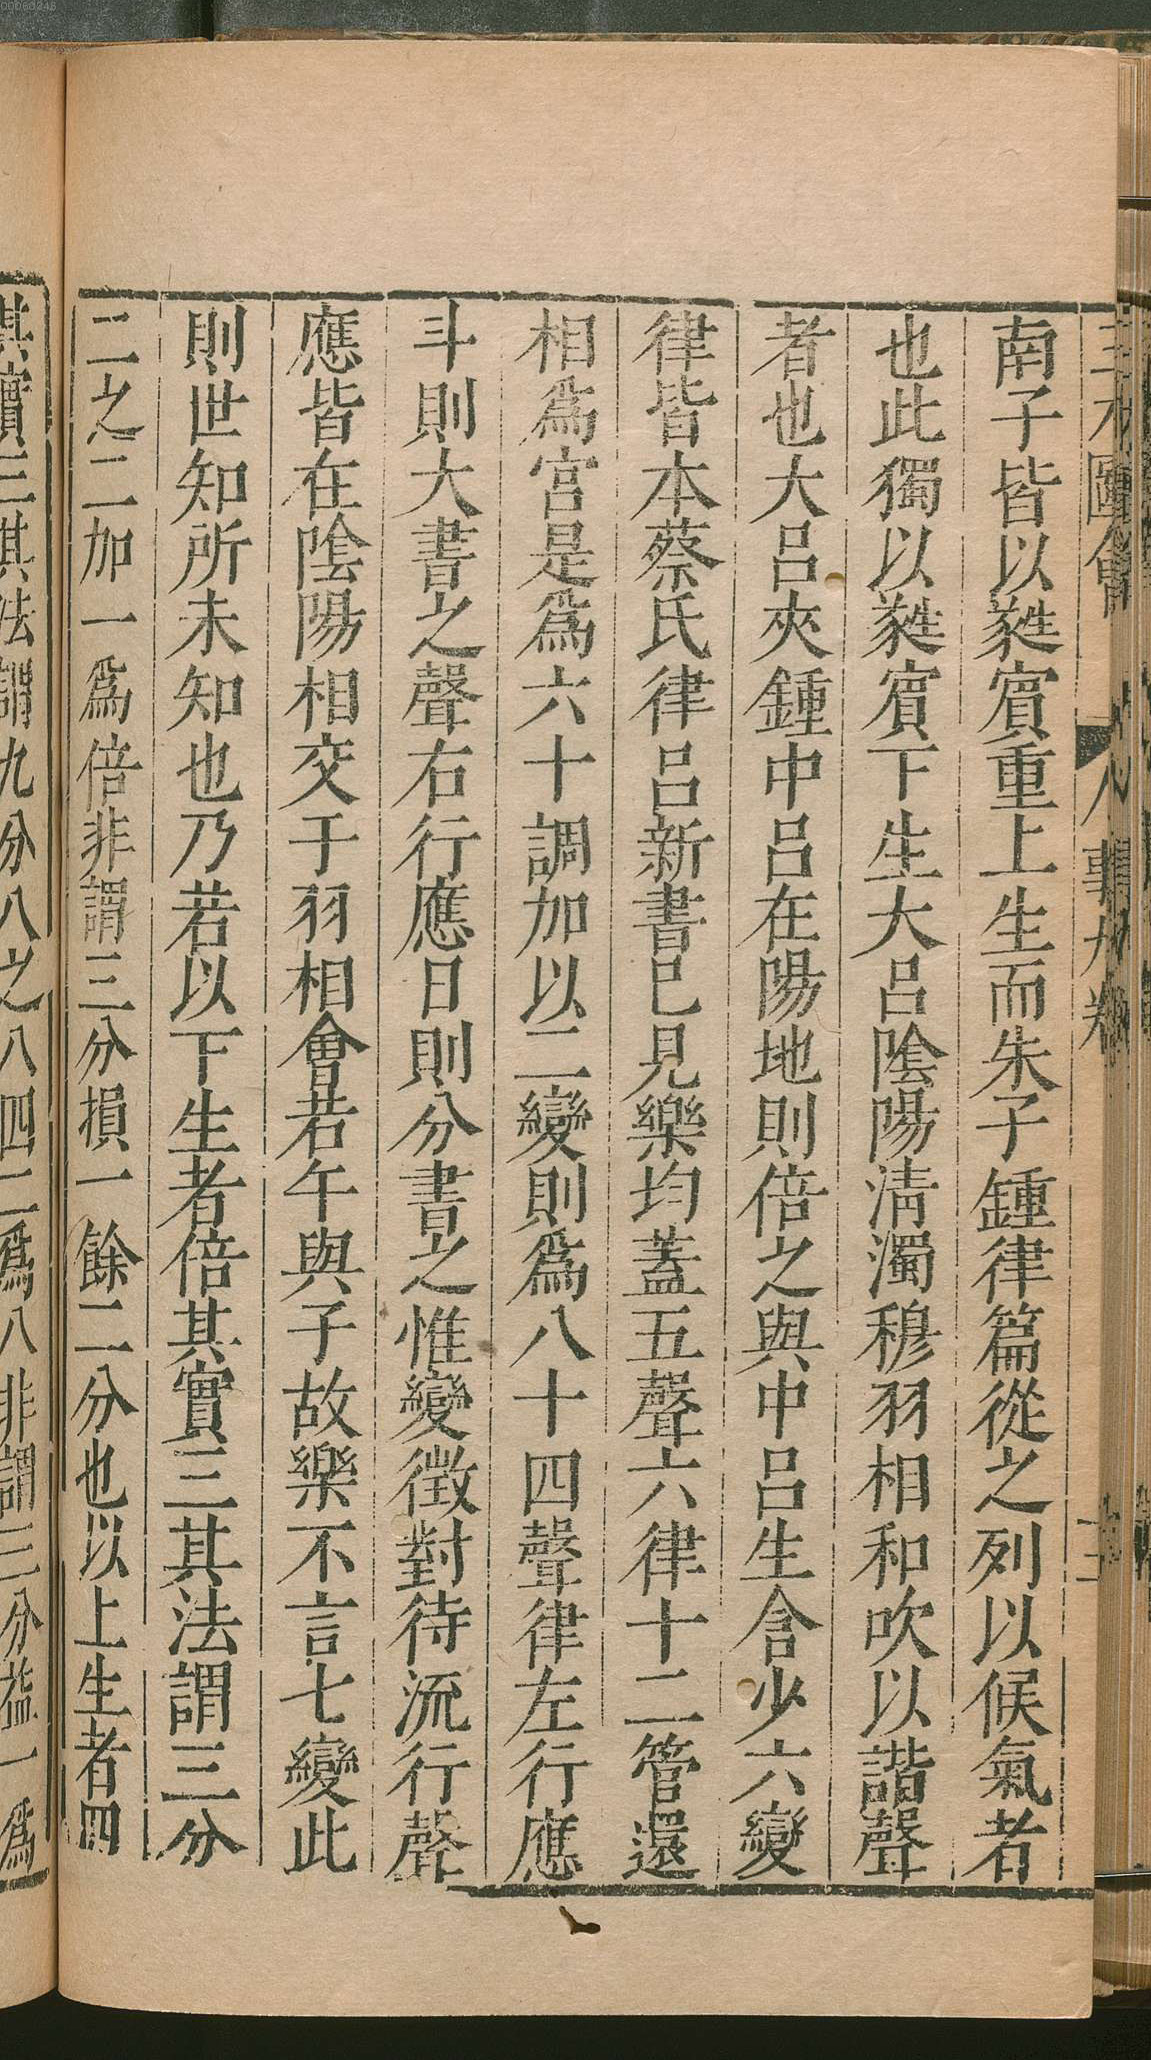 南子皆以蕤賓重上生而朱子鍾律篇從之列以候氣者
也此獨以蕤賓下生大呂陰陽淸濁穆羽相和吹以諧聲
者也大呂夾鍾中呂在陽地則倍之與中呂生含少六變
律皆本蔡氏律呂新書巳見樂均蓋五聲六律十二管還
相爲宮是爲六十調加以二變則爲八十四聲律左行應
斗則大書之聲右行應日則分書之惟變徵對待流行聲
應皆在陰陽相交于羽相會若午與子故樂不言七變此
則世知所未知也乃若以下生者倍其實三其法謂三分
二之二加一爲倍非謂三分損一餘二分也以上生者四
其實三其法謂九分八之八四二爲八非謂三分益一爲